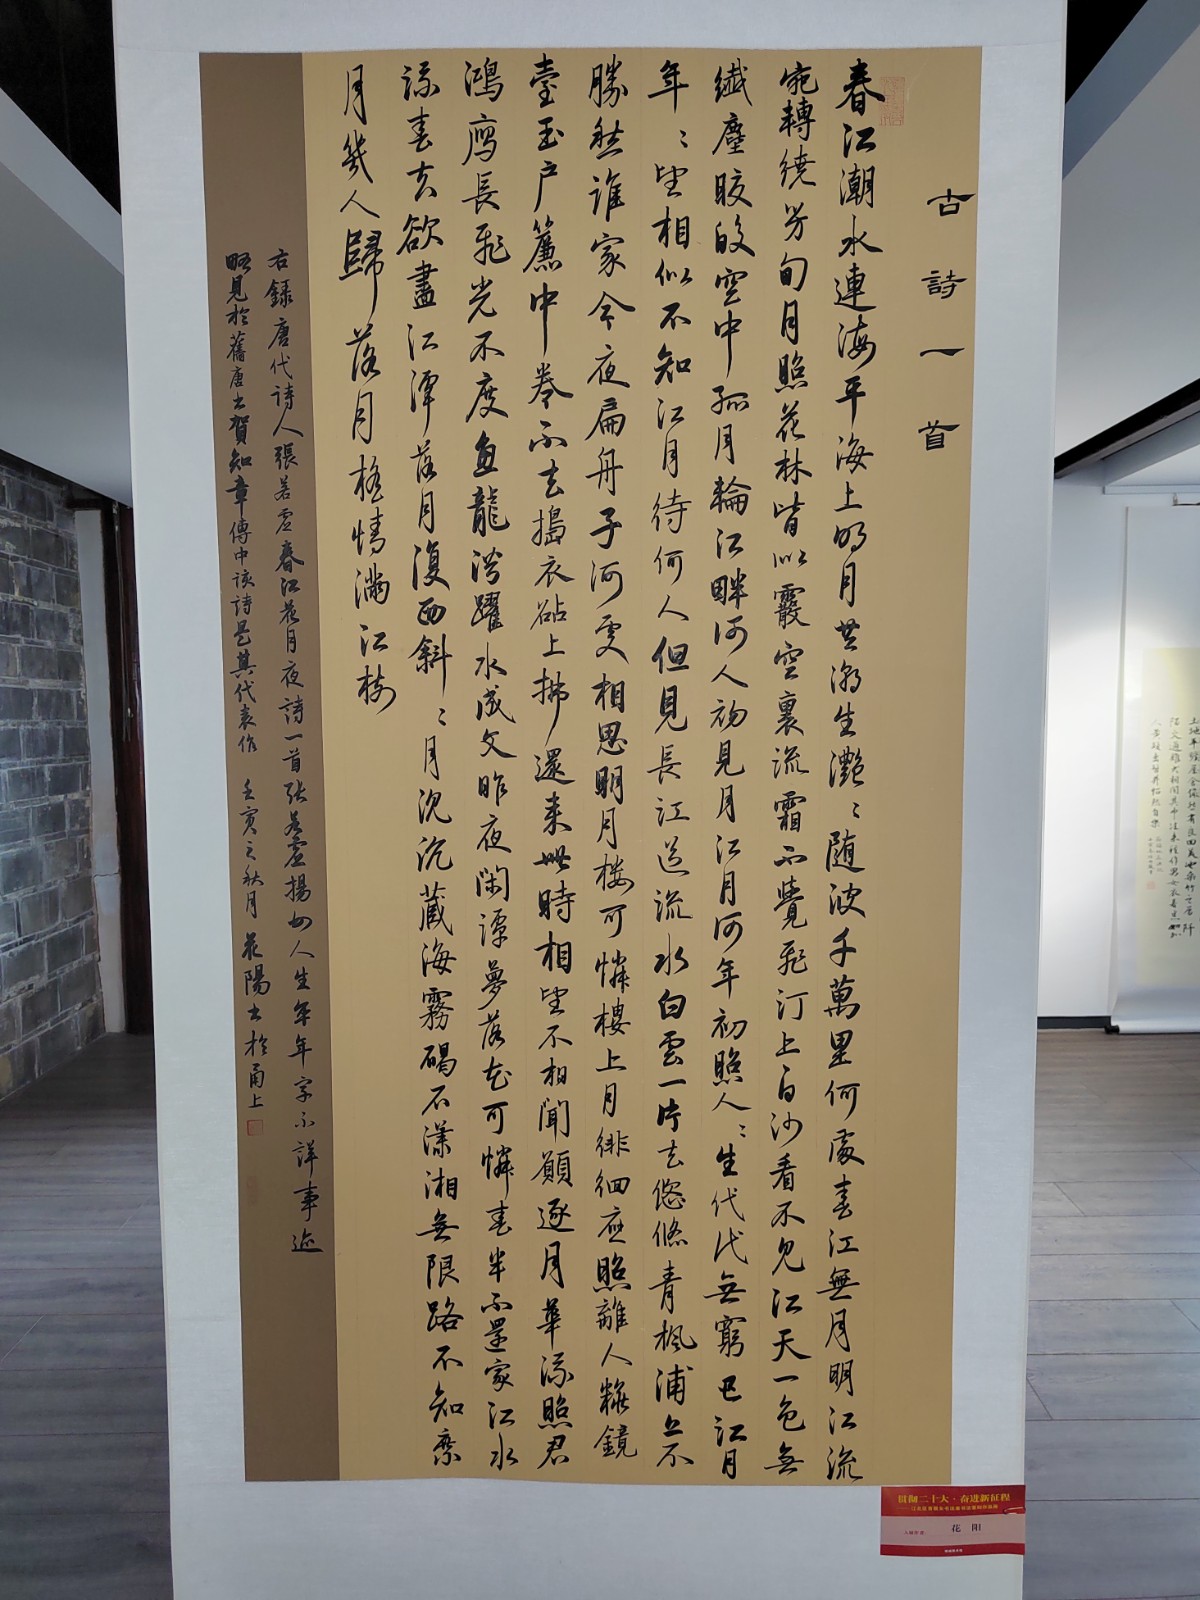 古詩一首
春江潮水連海平海上明月共潮生灧〻随波千萬里何處春江無月明江流
宛轉繞芳甸月照花林皆似霰空裏流霜不覺飛汀上白沙看不見江天一色無
纖塵皎皎空中孤月輪江畔何人初見月江月何年初照人〻生代代無窮已江月
年〻望相似不知江月待何人但見長江送流水白雲一片去悠悠青楓浦上不
勝愁誰家今夜扁舟子何處相思明月楼可憐樓上月徘徊應照離人粧鏡
臺玉户簾中卷不去搗衣砧上拂還来此時相望不相聞願逐月華流照君
鴻雁長飛光不度魚龍潛躍水成文昨夜閑潭夢落花可憐春半不還家江水
流春去欲盡江潭落月復西斜〻月沉沉藏海霧碣石潇湘無限路不知乘
月幾人歸落月摇情滿江樹
右錄唐代詩人張若虚春江花月夜詩一首张若虚揚州人生卒年字不詳事迹
略見於舊唐书賀知章傳中该詩是其代表作 壬寅之秋月 花陽书於甬上
贯彻二十大·奋进新征程
花 阳